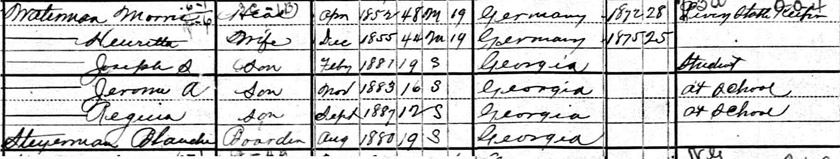 Waterman Morris Head Apr 1852 48 M 19 Germany 1872 28 Livery Stable Keeper
Henrietta Wife Dec 1855 44 M 19 Germany 1875 25
Joseph S Son Feby 1881 19 S Georgia Student
Jerome A Son Nov 1883 16 S Georgia at School
Reginia Son Sept 1887 12 S Georgia at School
Steyerman Blanche Boarder Aug 1880 19 S Georgia